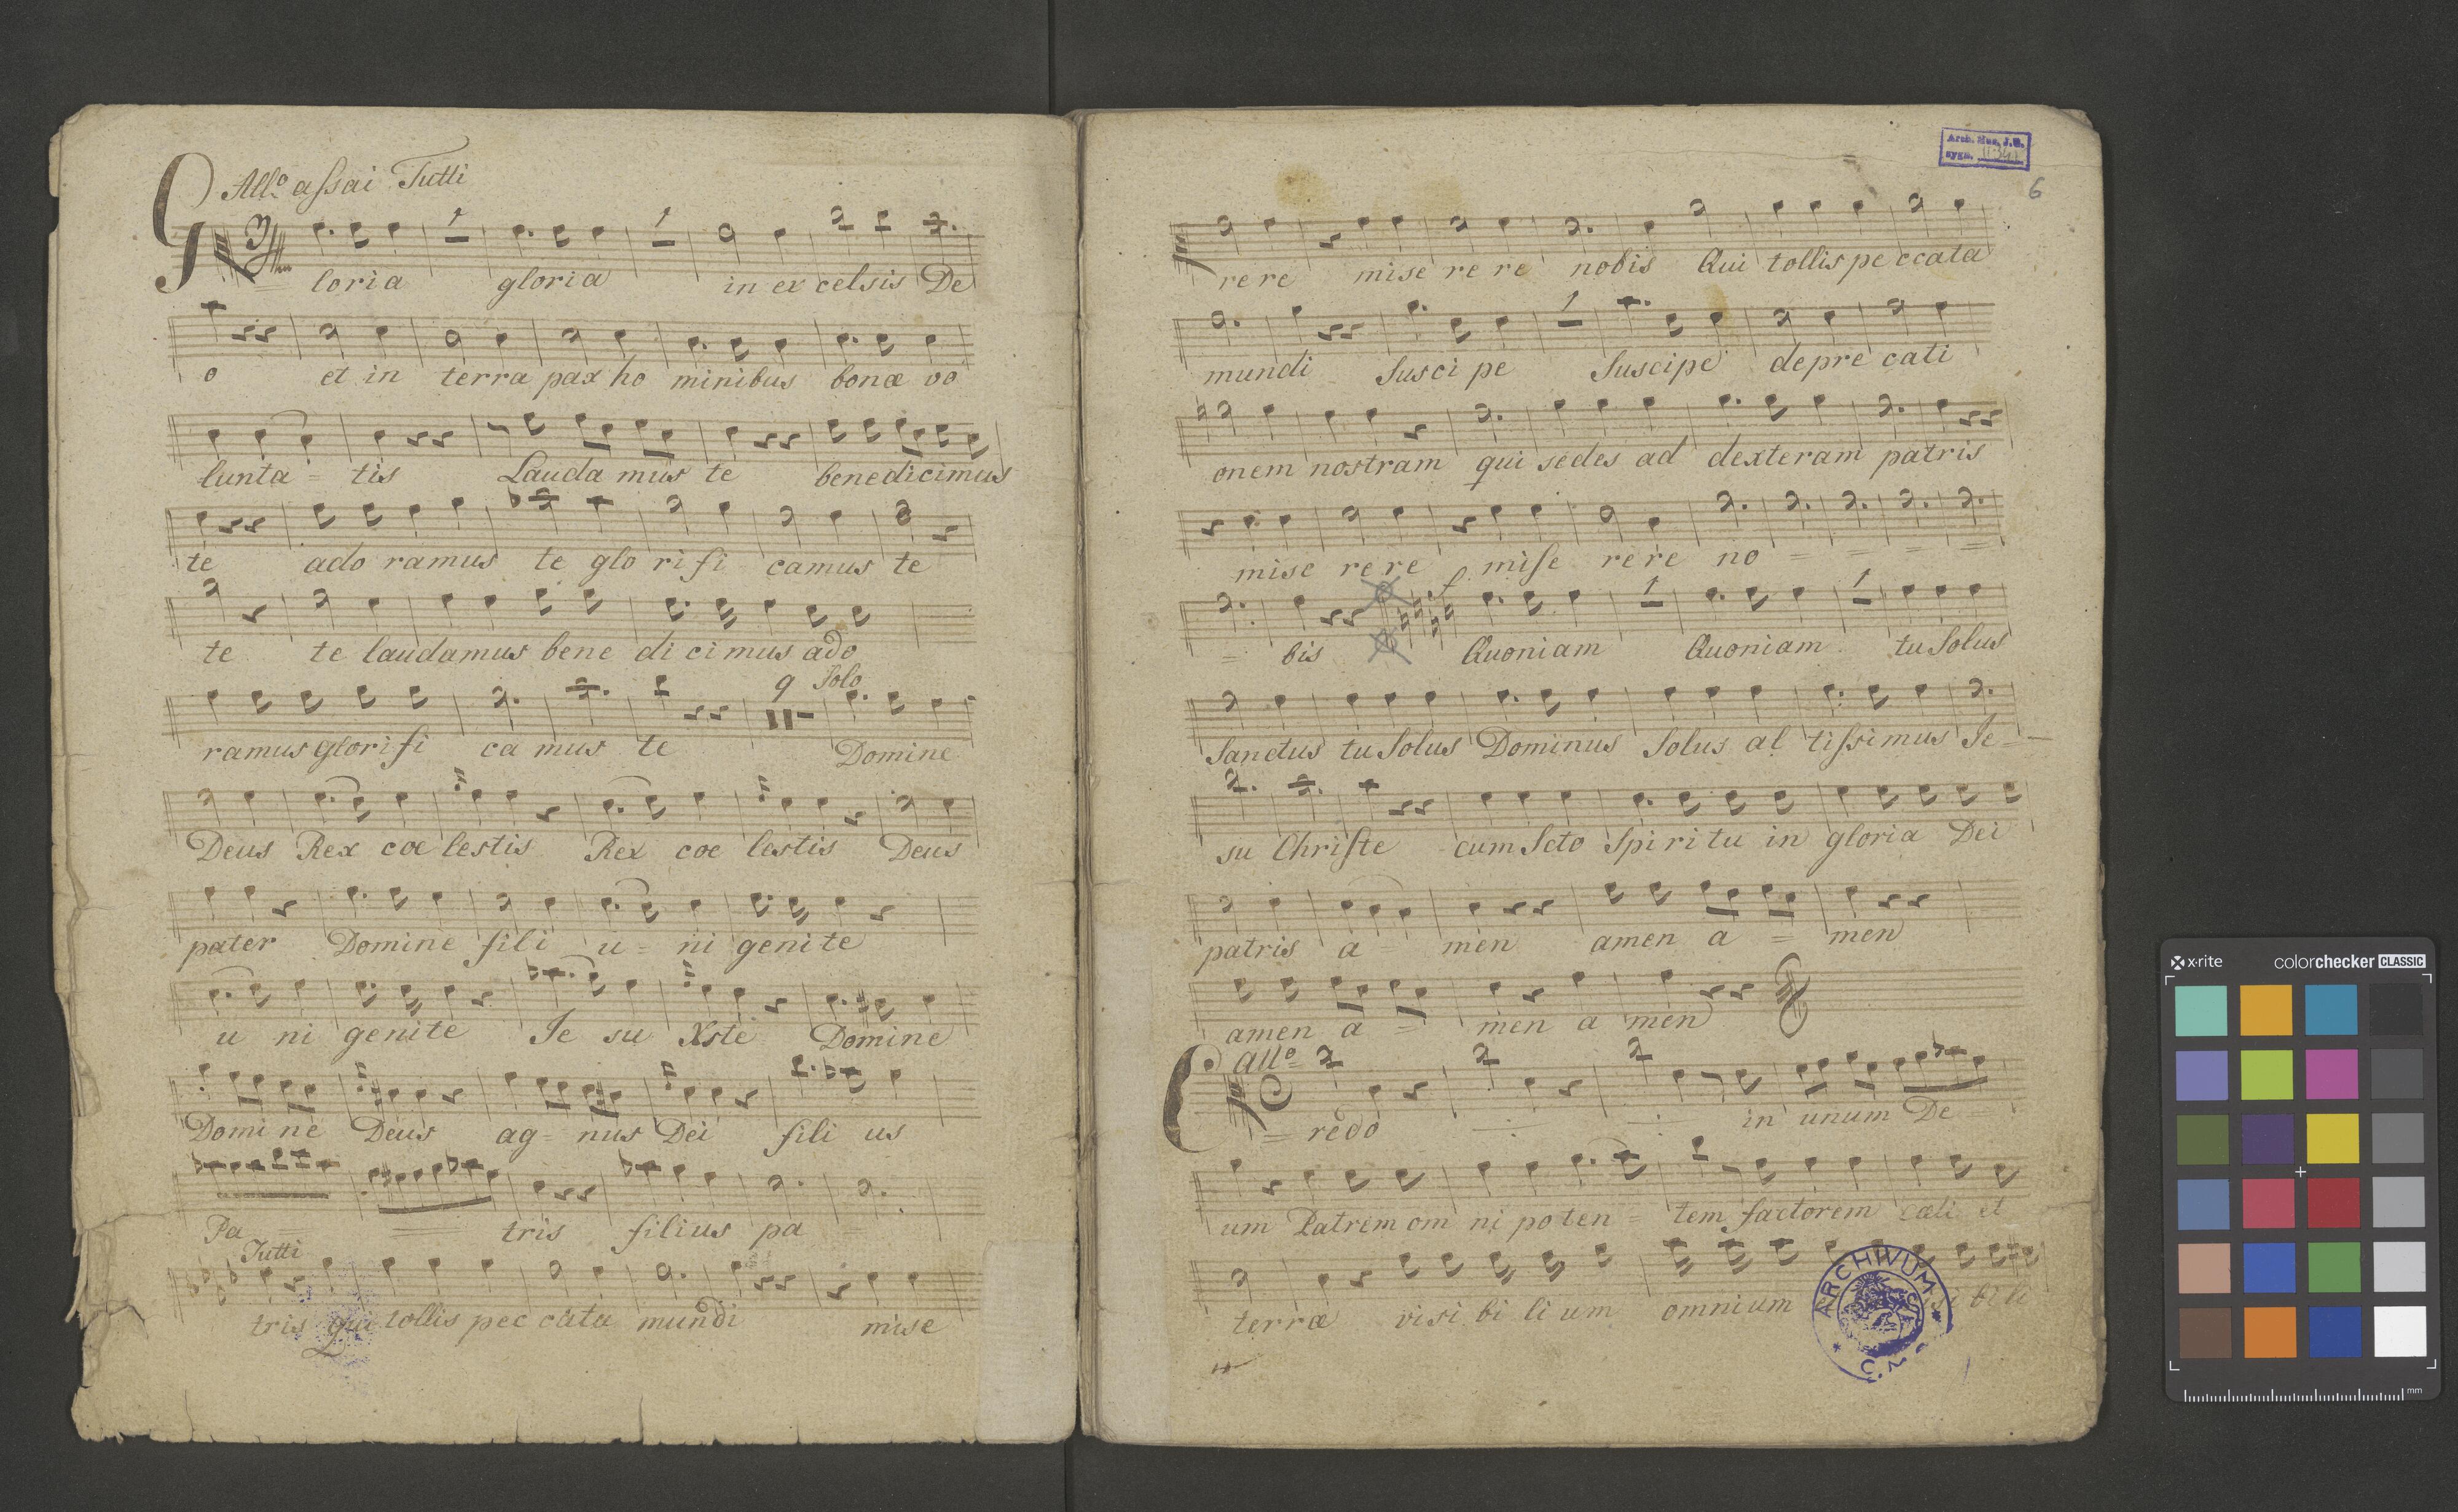 All.º assai Tutti
Gloria gloria in excelsis De
o et in terra pax ho minibus bonæ vo
lunta = tis Lauda mus te benedicimus
te ado ramus te glo rifi camus te
te te laudamus bene di cimus ado
9 Solo
ramus glorifi ca mus te Domine
Deus Rex coe lestis Rex coe lestis Deus
pater Domine fili u = ni genite
u ni genite Je su Xste Domine
Domine Deus ag = nus Dei fili us
Pa = = tris filius pa
Tutti
tris qui tollis pec cata mundi mise
Arch. Muz. J.G.
sygn.
6
rere mise re re nobis Qui tollis peccata
mundi Susci pe Suscipe depre cati
onem nostram qui sedes ad dexteram patris
mise re re miſe re re no = = = =
f
= bis Quoniam Quoniam tu Solus
Sanctus tu Solus Dominus Solus al tiſsimus Je =
su Chriſte cum Scto Spiritu in gloria Dei
patris a men amen a = men
amen a = men a men
all.º
C = redo in unum De
um Patrem om ni poten = tem factorem cæli et
terræ visi bi li um omnium bi li
ARCHIWUM
C.M.
x-rite colorchecker CLASSIC
mm